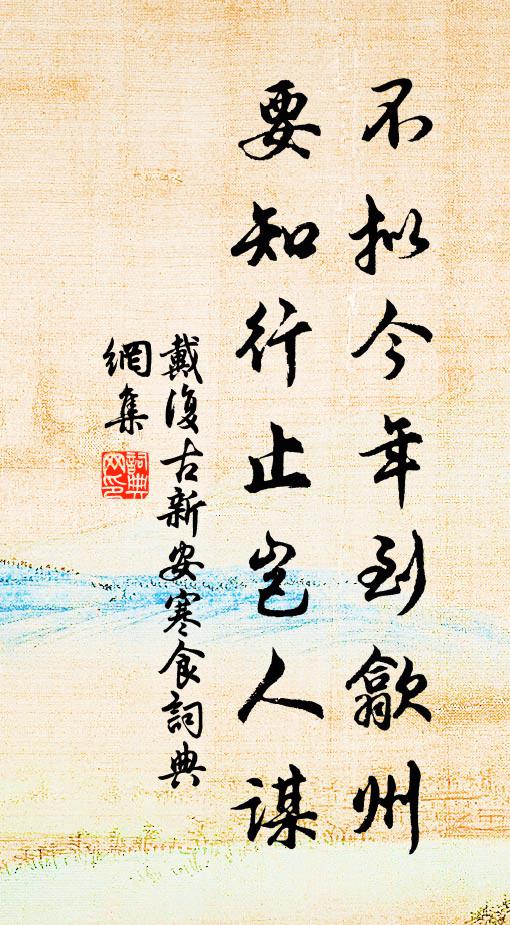 不拟今年到歙州
要知行止岂人谋
戴復古新安寒食詞典
網集
詞典
网印